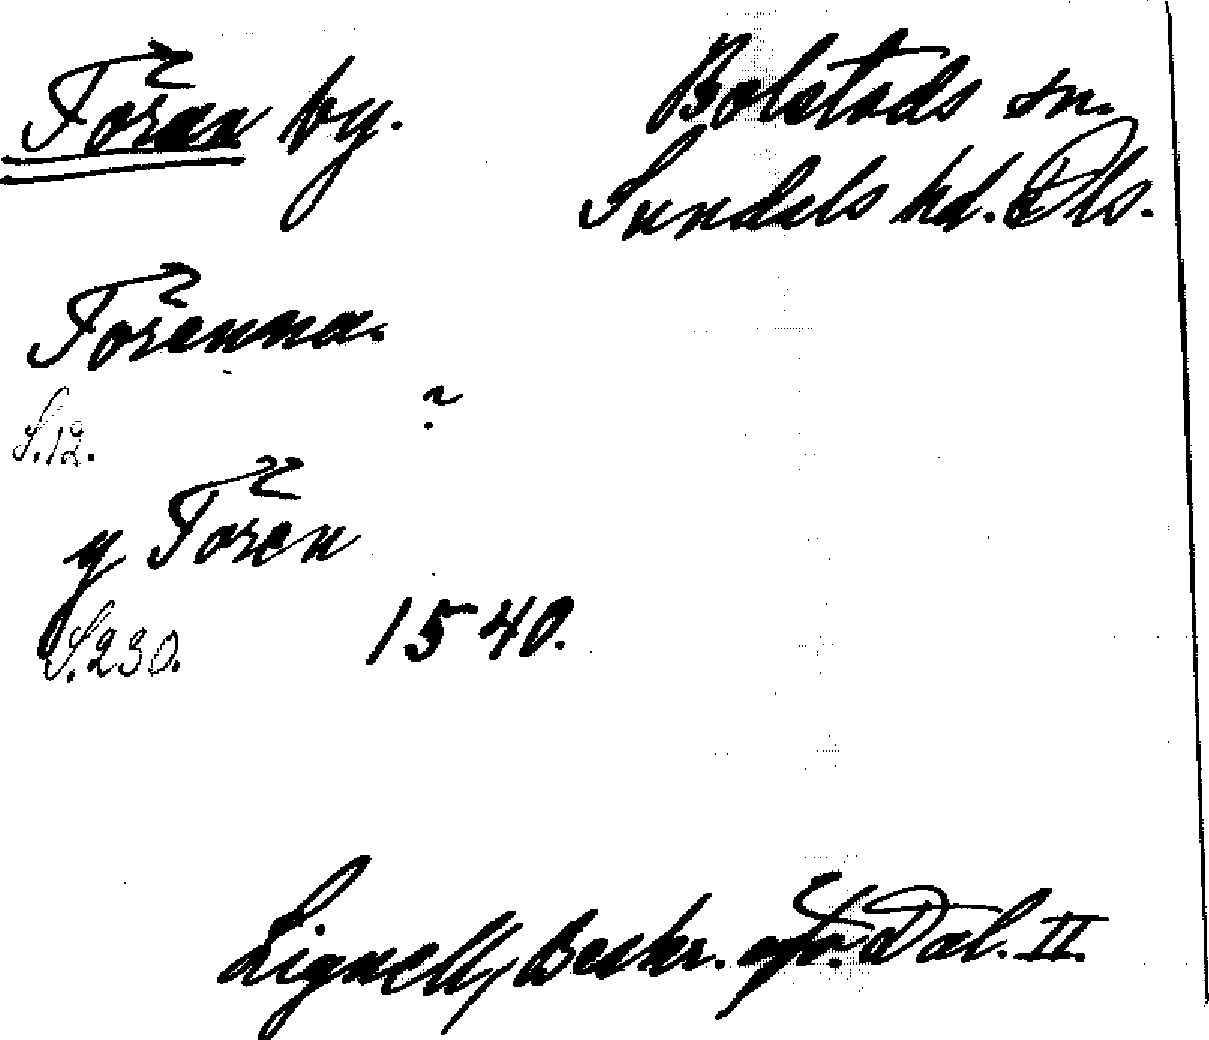 Torǎn by.
Bolstads sn.
Sundals hd. Dls.
Torenna.
S. 12.
?
y Toren
S. 230.
1540.
Lignell, Beskr. öfv. Dal. II.